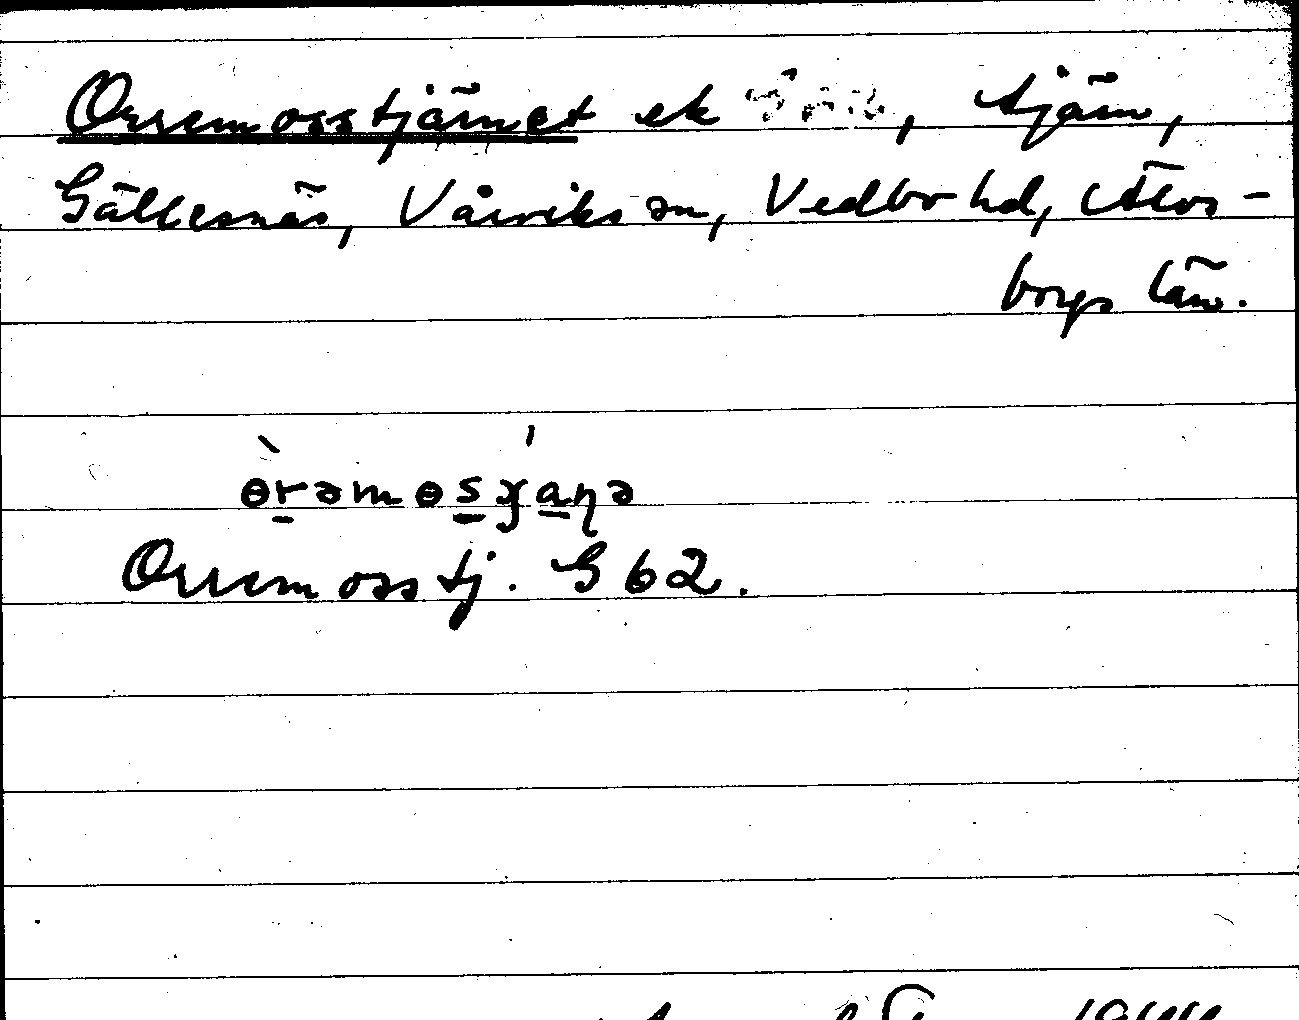 Orremosstjärnet ek , tjärn,
Gällesnäs, Vårviks sn, Vedbo hd, Älvs-
borgs län.
ɵ̀rəmɵsɣaɳə
Orremosstj. G 62.